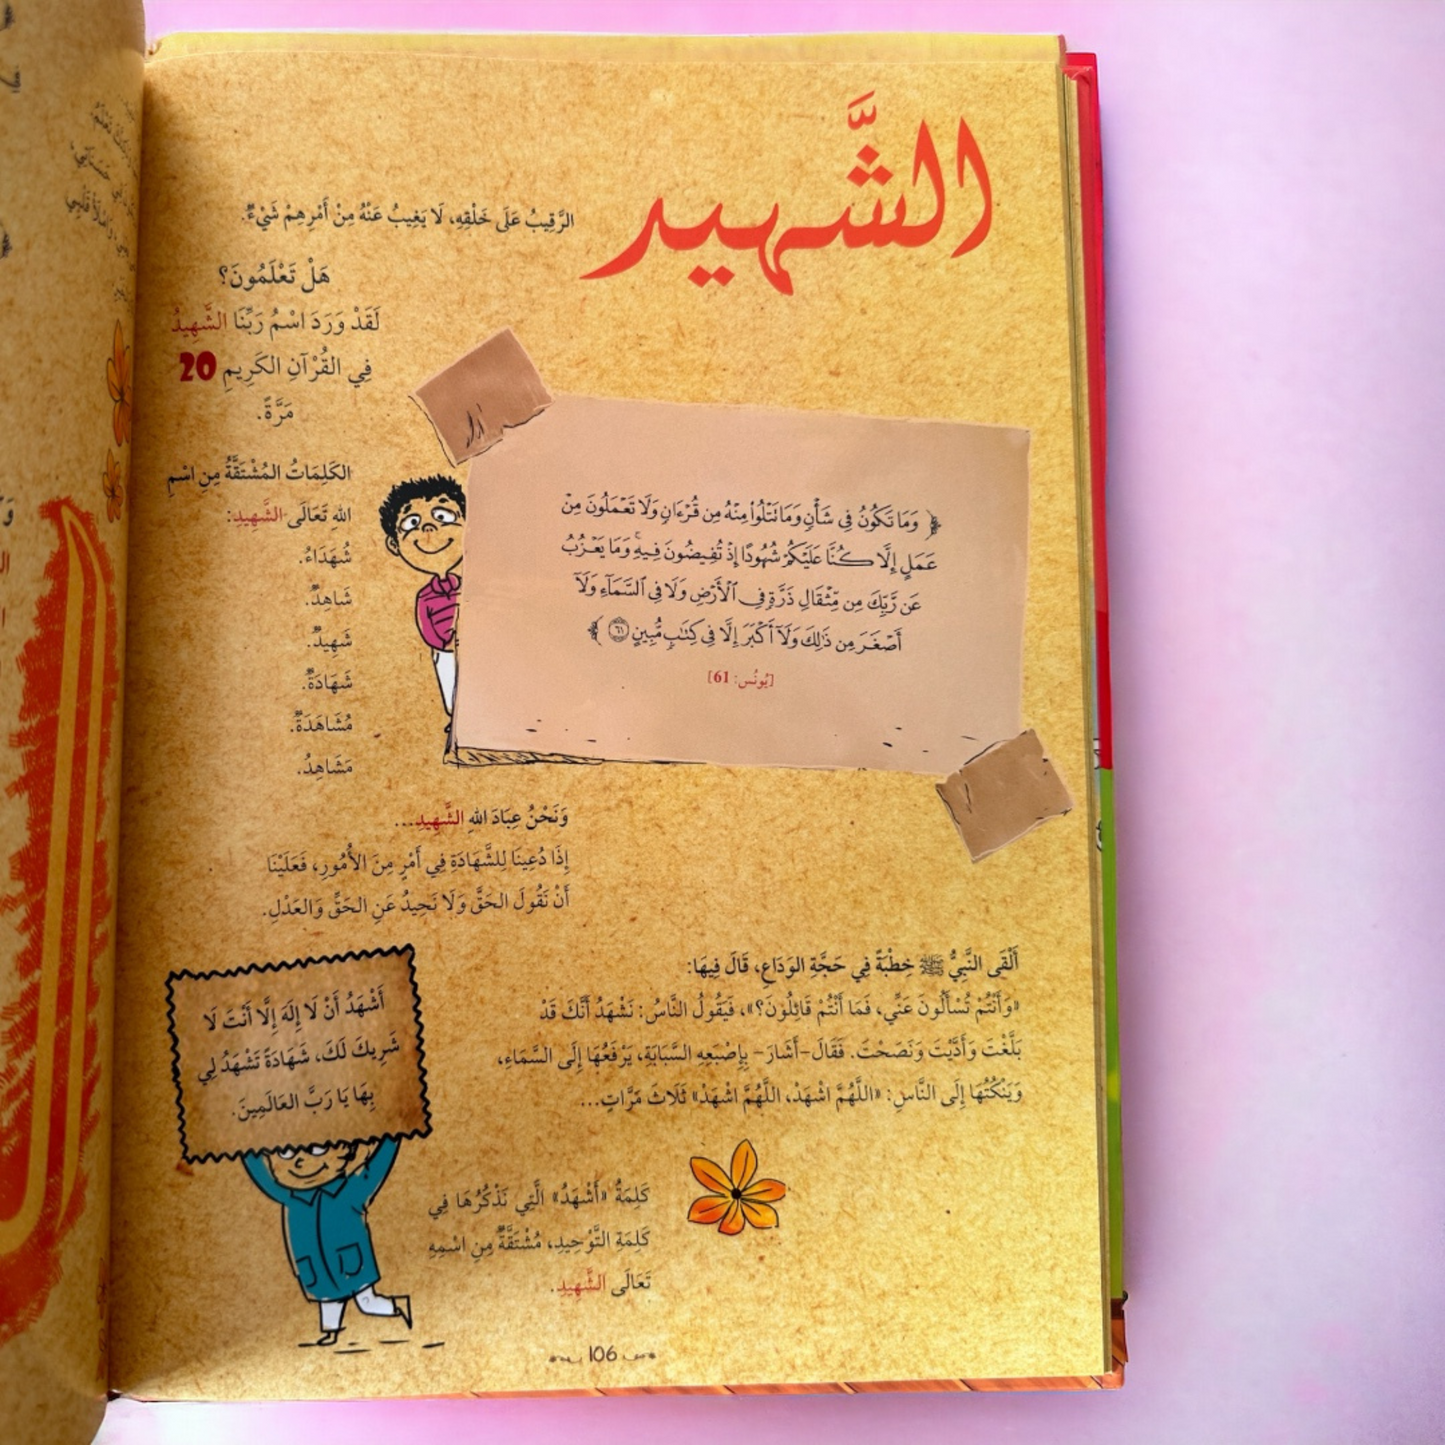 الشَّهِيد
الرَّقِيبُ عَلَى خَلْقِهِ، لَا يَغِيبُ عَنْهُ مِنْ أَمْرِهِمْ شَيْءٌ.
هَلْ تَعْلَمُونَ؟
لَقَدْ وَرَدَ اسْمُ رَبِّنَا الشَّهِيدُ
فِي القُرْآنِ الكَرِيمِ 20
مَرَّةً.
الكَلِمَاتُ المُشْتَقَّةُ مِنِ اسْمِ
اللهِ تَعَالَى الشَّهِيدِ:
شُهَدَاءُ.
شَاهِدٌ.
شَهِيدٌ.
شَهَادَةٌ.
مُشَاهَدَةٌ.
مَشَاهِدُ.
﴿ وَمَا تَكُونُ فِي شَأْنٍ وَمَا تَتْلُوا۟ مِنْهُ مِن قُرْءَانٍ وَلَا تَعْمَلُونَ مِنْ
عَمَلٍ إِلَّا كُنَّا عَلَيْكُمْ شُهُودًا إِذْ تُفِيضُونَ فِيهِ ۚ وَمَا يَعْزُبُ
عَن رَّبِّكَ مِن مِّثْقَالِ ذَرَّةٍ فِي ٱلْأَرْضِ وَلَا فِي ٱلسَّمَآءِ وَلَآ
أَصْغَرَ مِن ذَٰلِكَ وَلَآ أَكْبَرَ إِلَّا فِي كِتَٰبٍ مُّبِينٍ ٦١ ﴾
[يُونُس: 61]
وَنَحْنُ عِبَادَ اللهِ الشَّهِيدِ...
إِذَا دُعِينَا لِلشَّهَادَةِ فِي أَمْرٍ مِنَ الأُمُورِ، فَعَلَيْنَا
أَنْ نَقُولَ الحَقَّ وَلَا نَحِيدُ عَنِ الحَقِّ وَالعَدْلِ.
أَلْقَى النَّبِيُّ ﷺ خِطْبَةً فِي حَجَّةِ الوَدَاعِ، قَالَ فِيهَا:
«وَأَنْتُمْ تُسْأَلُونَ عَنِّي، فَمَا أَنْتُمْ قَائِلُونَ؟»، فَيَقُولُ النَّاسُ: نَشْهَدُ أَنَّكَ قَدْ
بَلَّغْتَ وَأَدَّيْتَ وَنَصَحْتَ. فَقَالَ-أَشَارَ- بِإِصْبَعِهِ السَّبَابَةِ، يَرْفَعُهَا إِلَى السَّمَاءِ،
وَيَنْكُتُهَا إِلَى النَّاسِ: «اللَّهُمَّ اشْهَدْ، اللَّهُمَّ اشْهَدْ» ثَلَاثَ مَرَّاتٍ...
أَشْهَدُ أَنْ لَا إِلَهَ إِلَّا أَنْتَ لَا
شَرِيكَ لَكَ، شَهَادَةً تَشْهَدُ لِي
بِهَا يَا رَبَّ العَالَمِينَ.
كَلِمَةُ «أَشْهَدُ» الَّتِي نَذْكُرُهَا فِي
كَلِمَةِ التَّوْحِيدِ، مُشْتَقَّةٌ مِنِ اسْمِهِ
تَعَالَى الشَّهِيدِ.
106